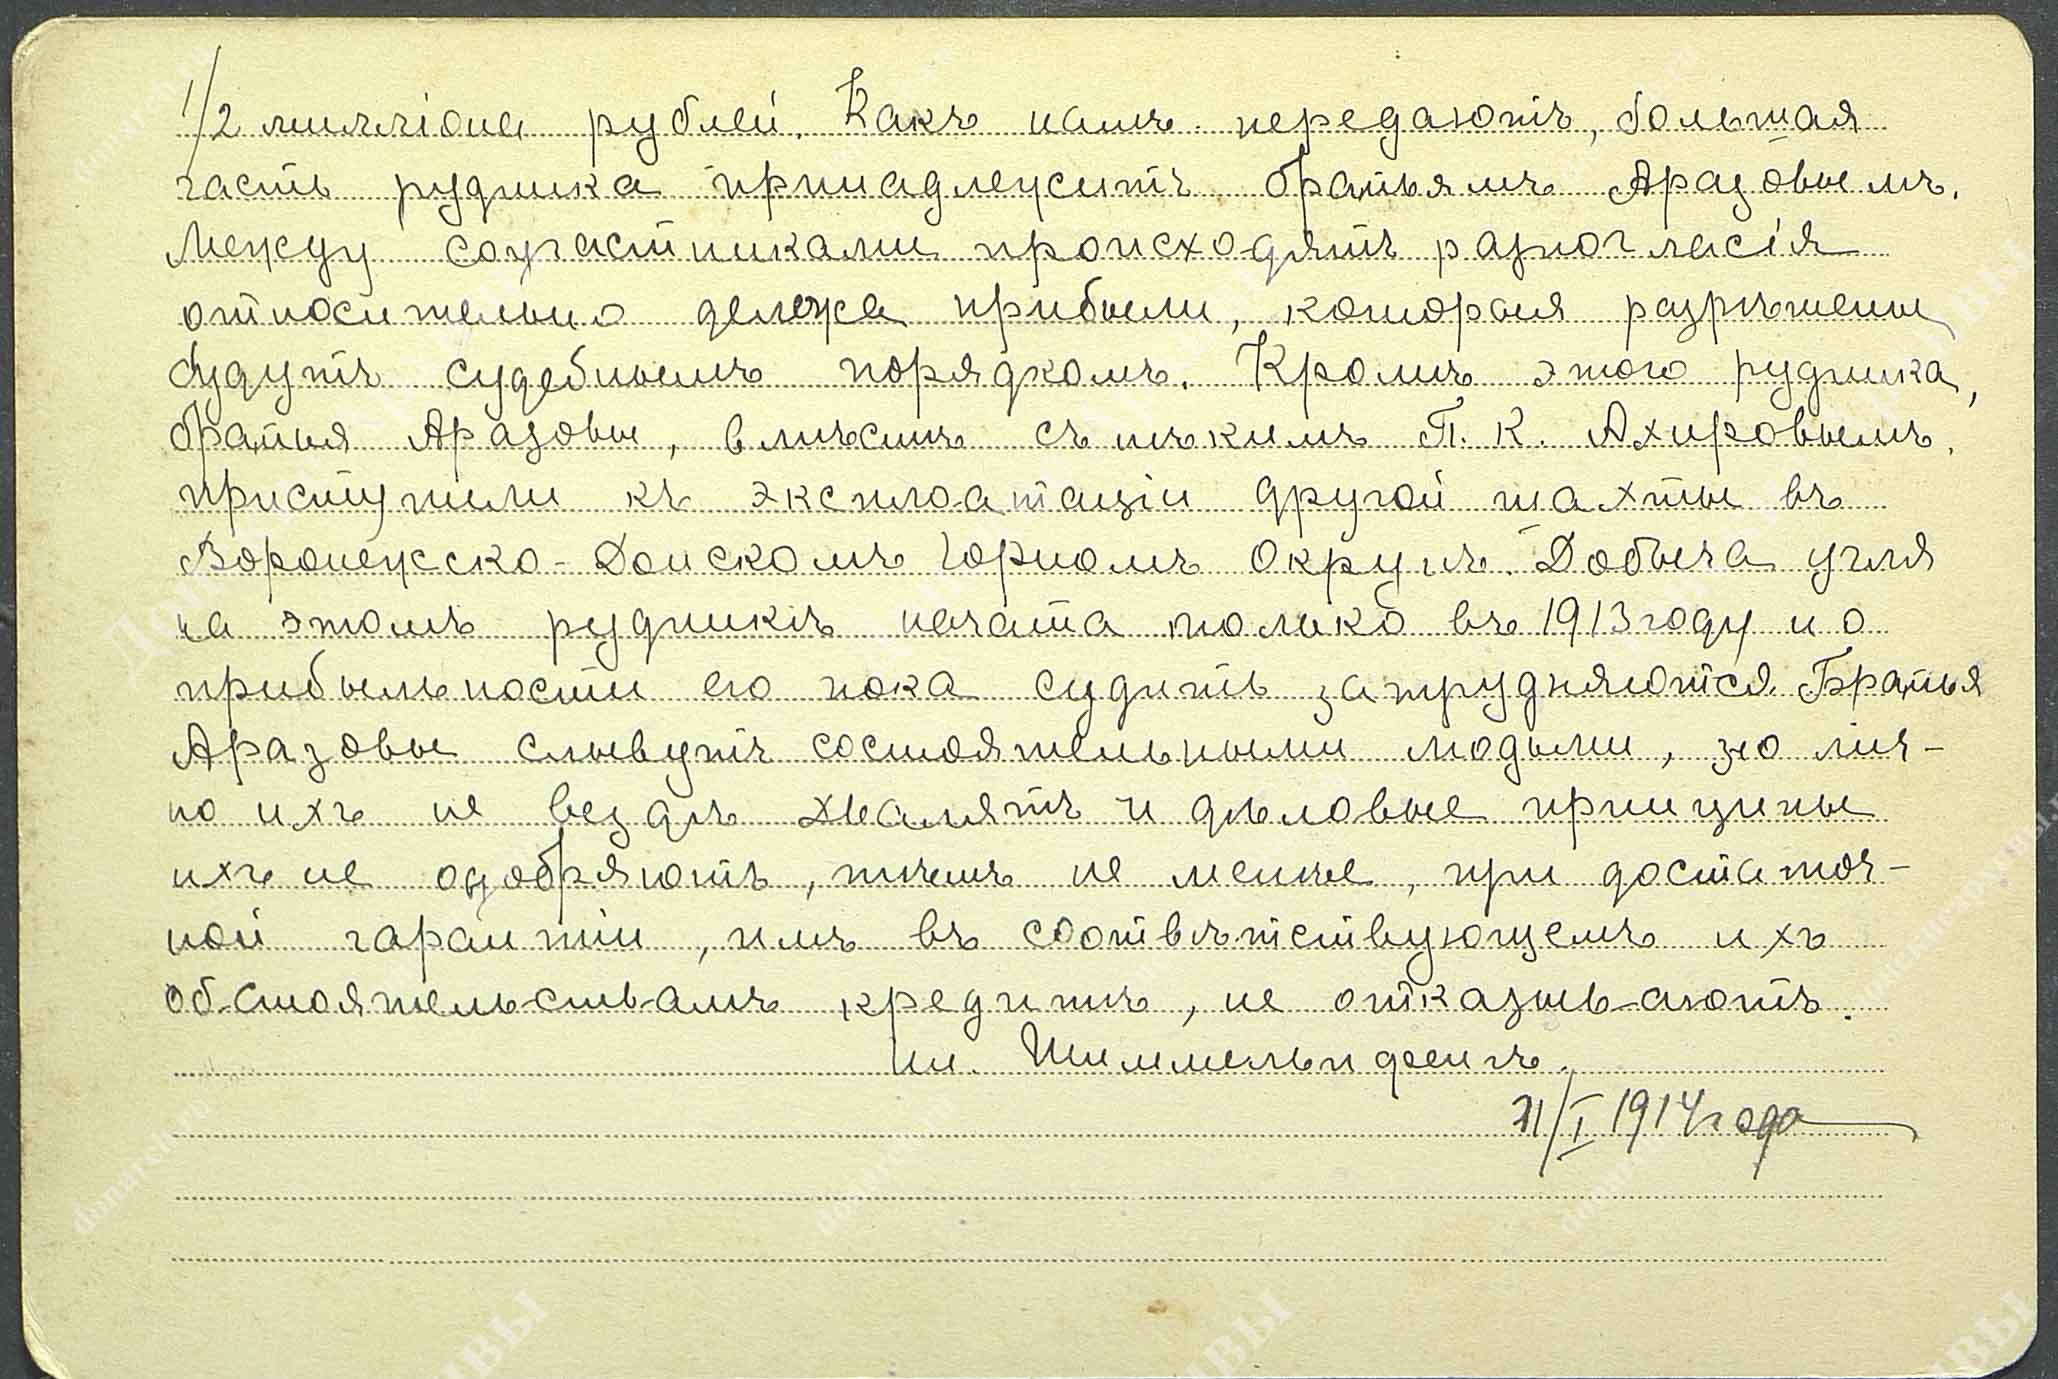 1/2 милліона рублей. Какъ намъ передаютъ, большая
часть рудника принадлежитъ братьямъ Аразовымъ.
Между соучастниками происходятъ разногласія
относительно дележа прибыли, которыя разрѣшены
будутъ судебнымъ порядкомъ. Кромѣ этого рудника,
братья Аразовы, вмѣстѣ съ нѣкимъ П. К. Ахировымъ,
приступили къ эксплоатаціи другой шахты въ
Воронежско-Донскомъ Горномъ Округѣ. Добыча угля
на этомъ рудникѣ начата только въ 1913 году и о
прибыльности его пока судить затрудняются. Братья
Аразовы слывутъ состоятельными людьми, но лич-
но ихъ не вездѣ хвалятъ и дѣловые принципы
ихъ не одобряютъ, тѣмъ не менѣе, при достаточ-
ной гарантіи, имъ въ соотвѣтствующемъ ихъ
обстоятельствамъ кредитѣ, не отказываютъ.
Шиммельпфенгъ.
/I 1914 года